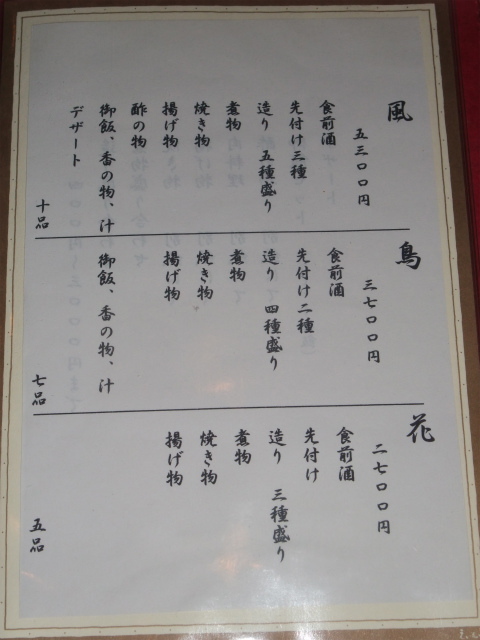 風
五三〇〇円
食前酒
先付け三種
造り 五種盛り
煮物
焼き物
揚げ物
酢の物
御飯、香の物、汁
デザート
十品
鳥
三七〇〇円
食前酒
先付け二種
造り 四種盛り
煮物
焼き物
揚げ物
御飯、香の物、汁
七品
花
二七〇〇円
食前酒
先付け
造り 三種盛り
煮物
焼き物
揚げ物
五品